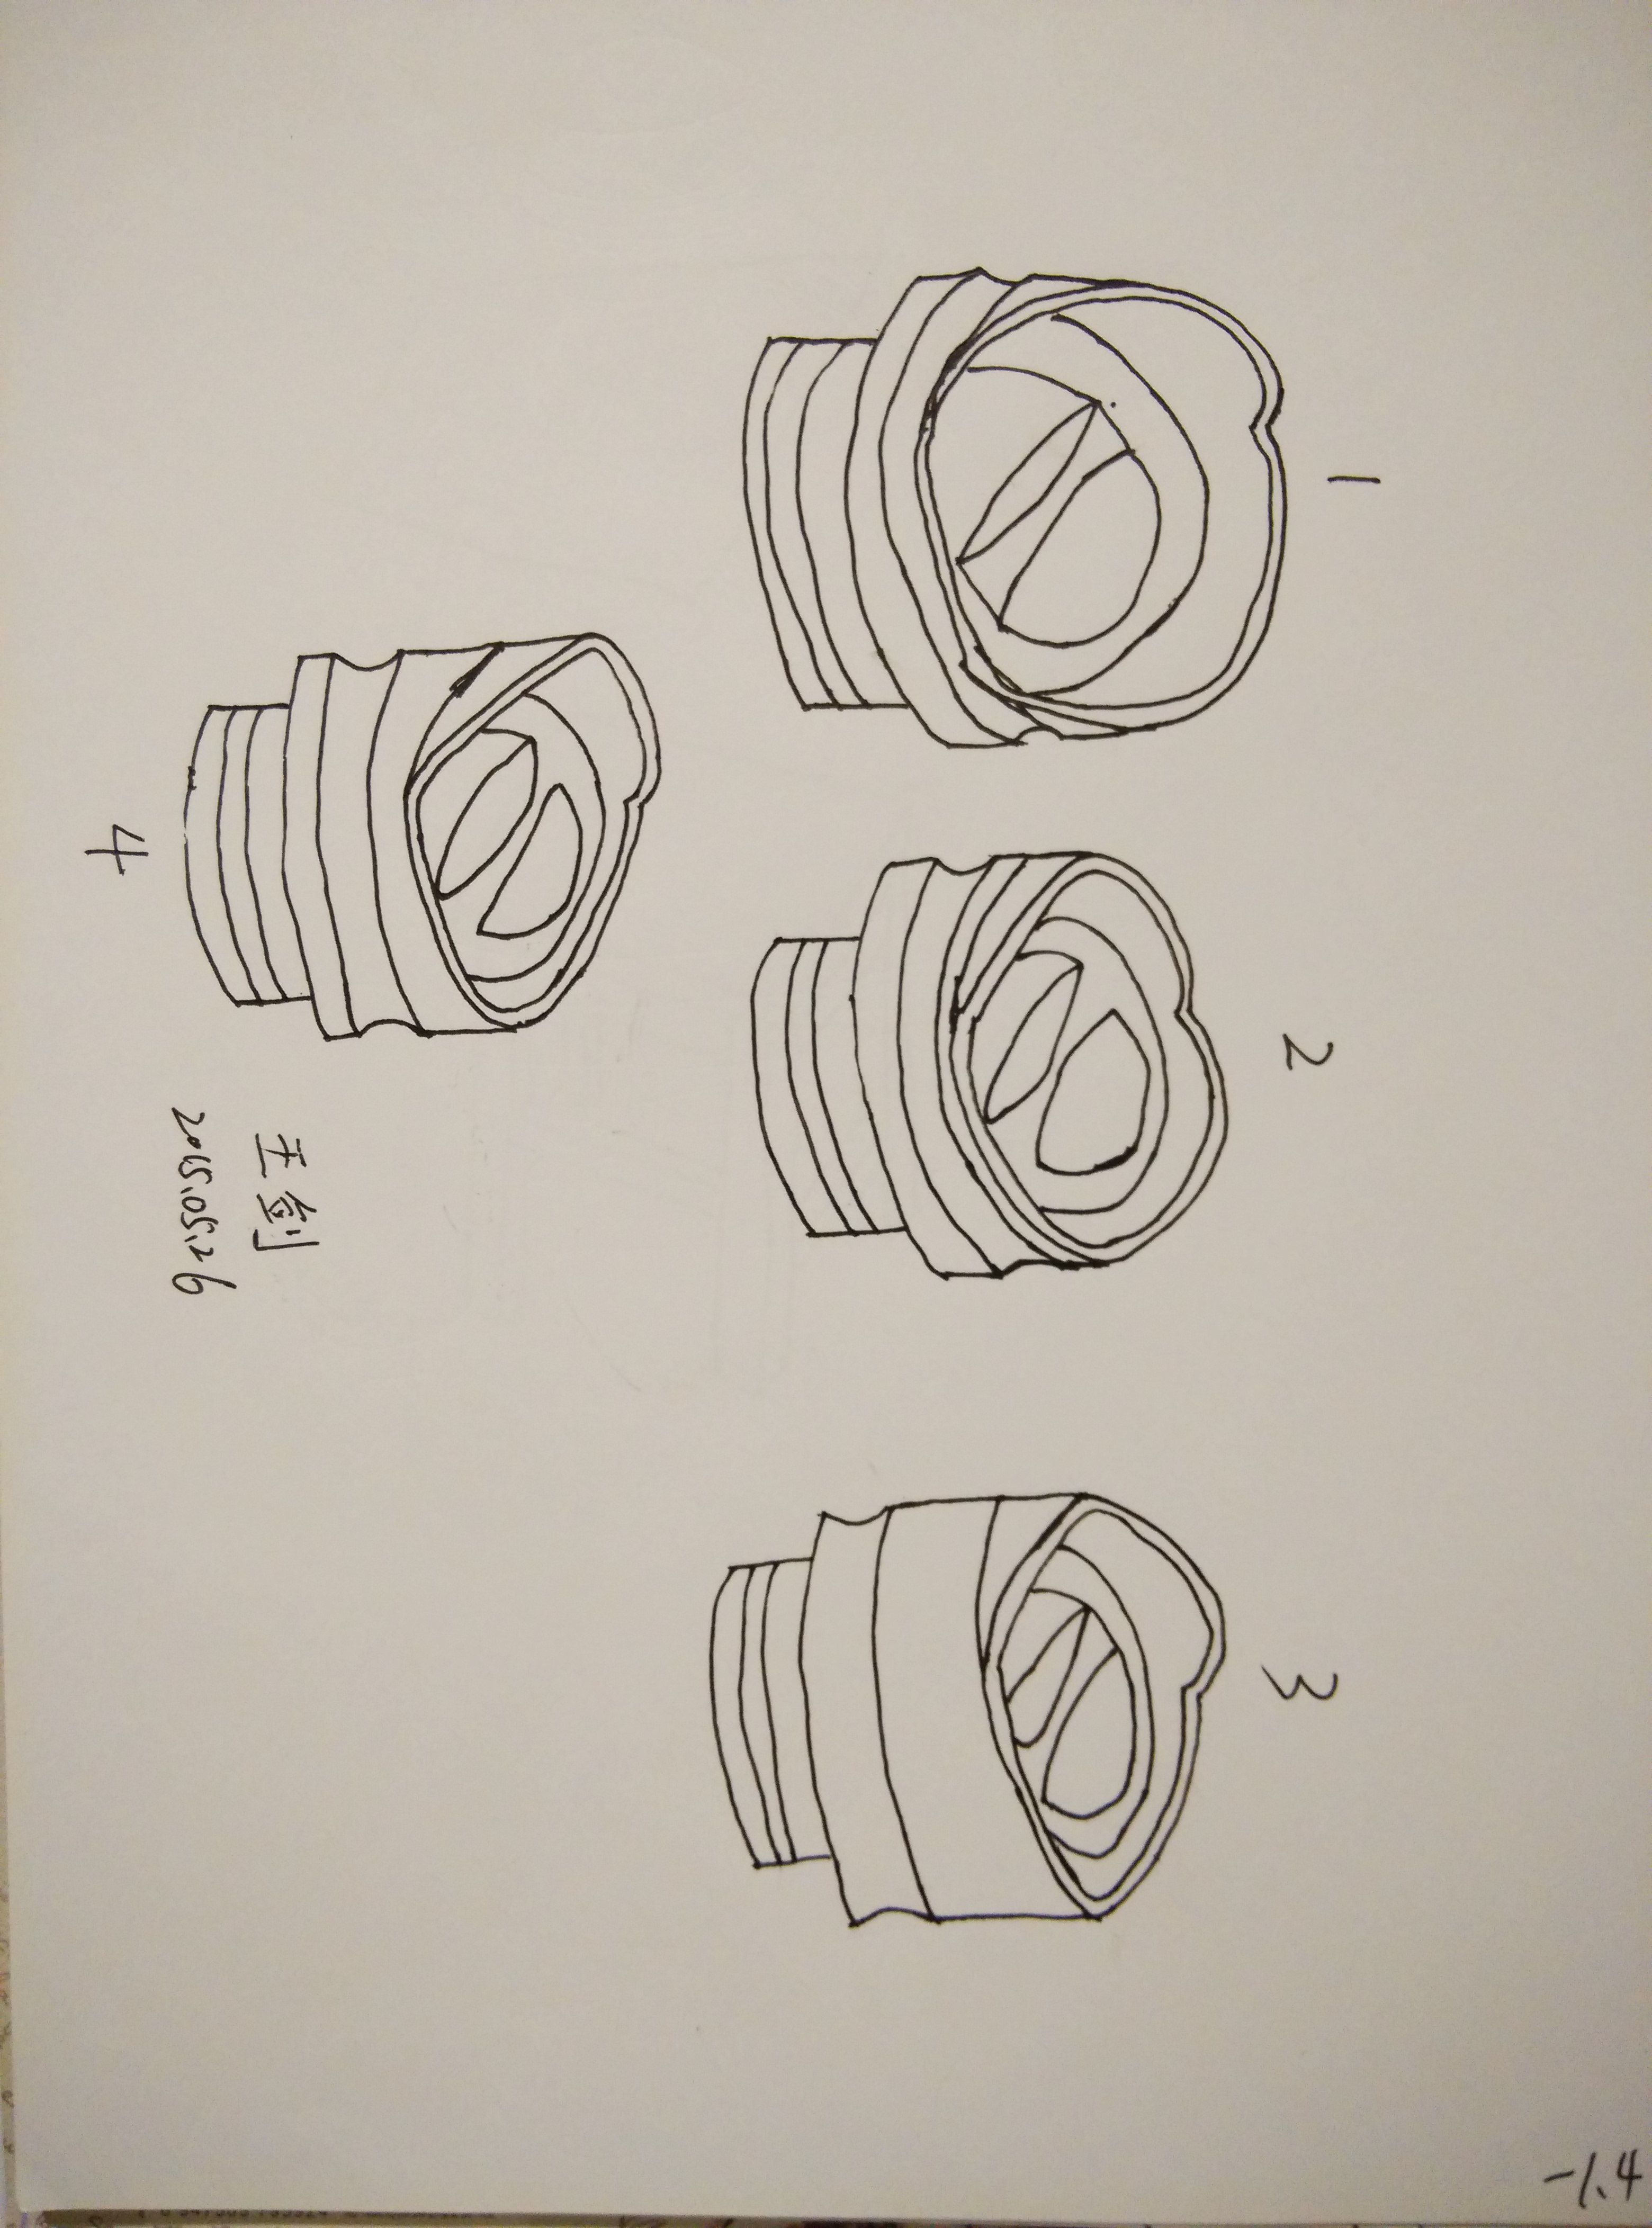 1
2
3
4
王剑
2015.05.26
-1.4